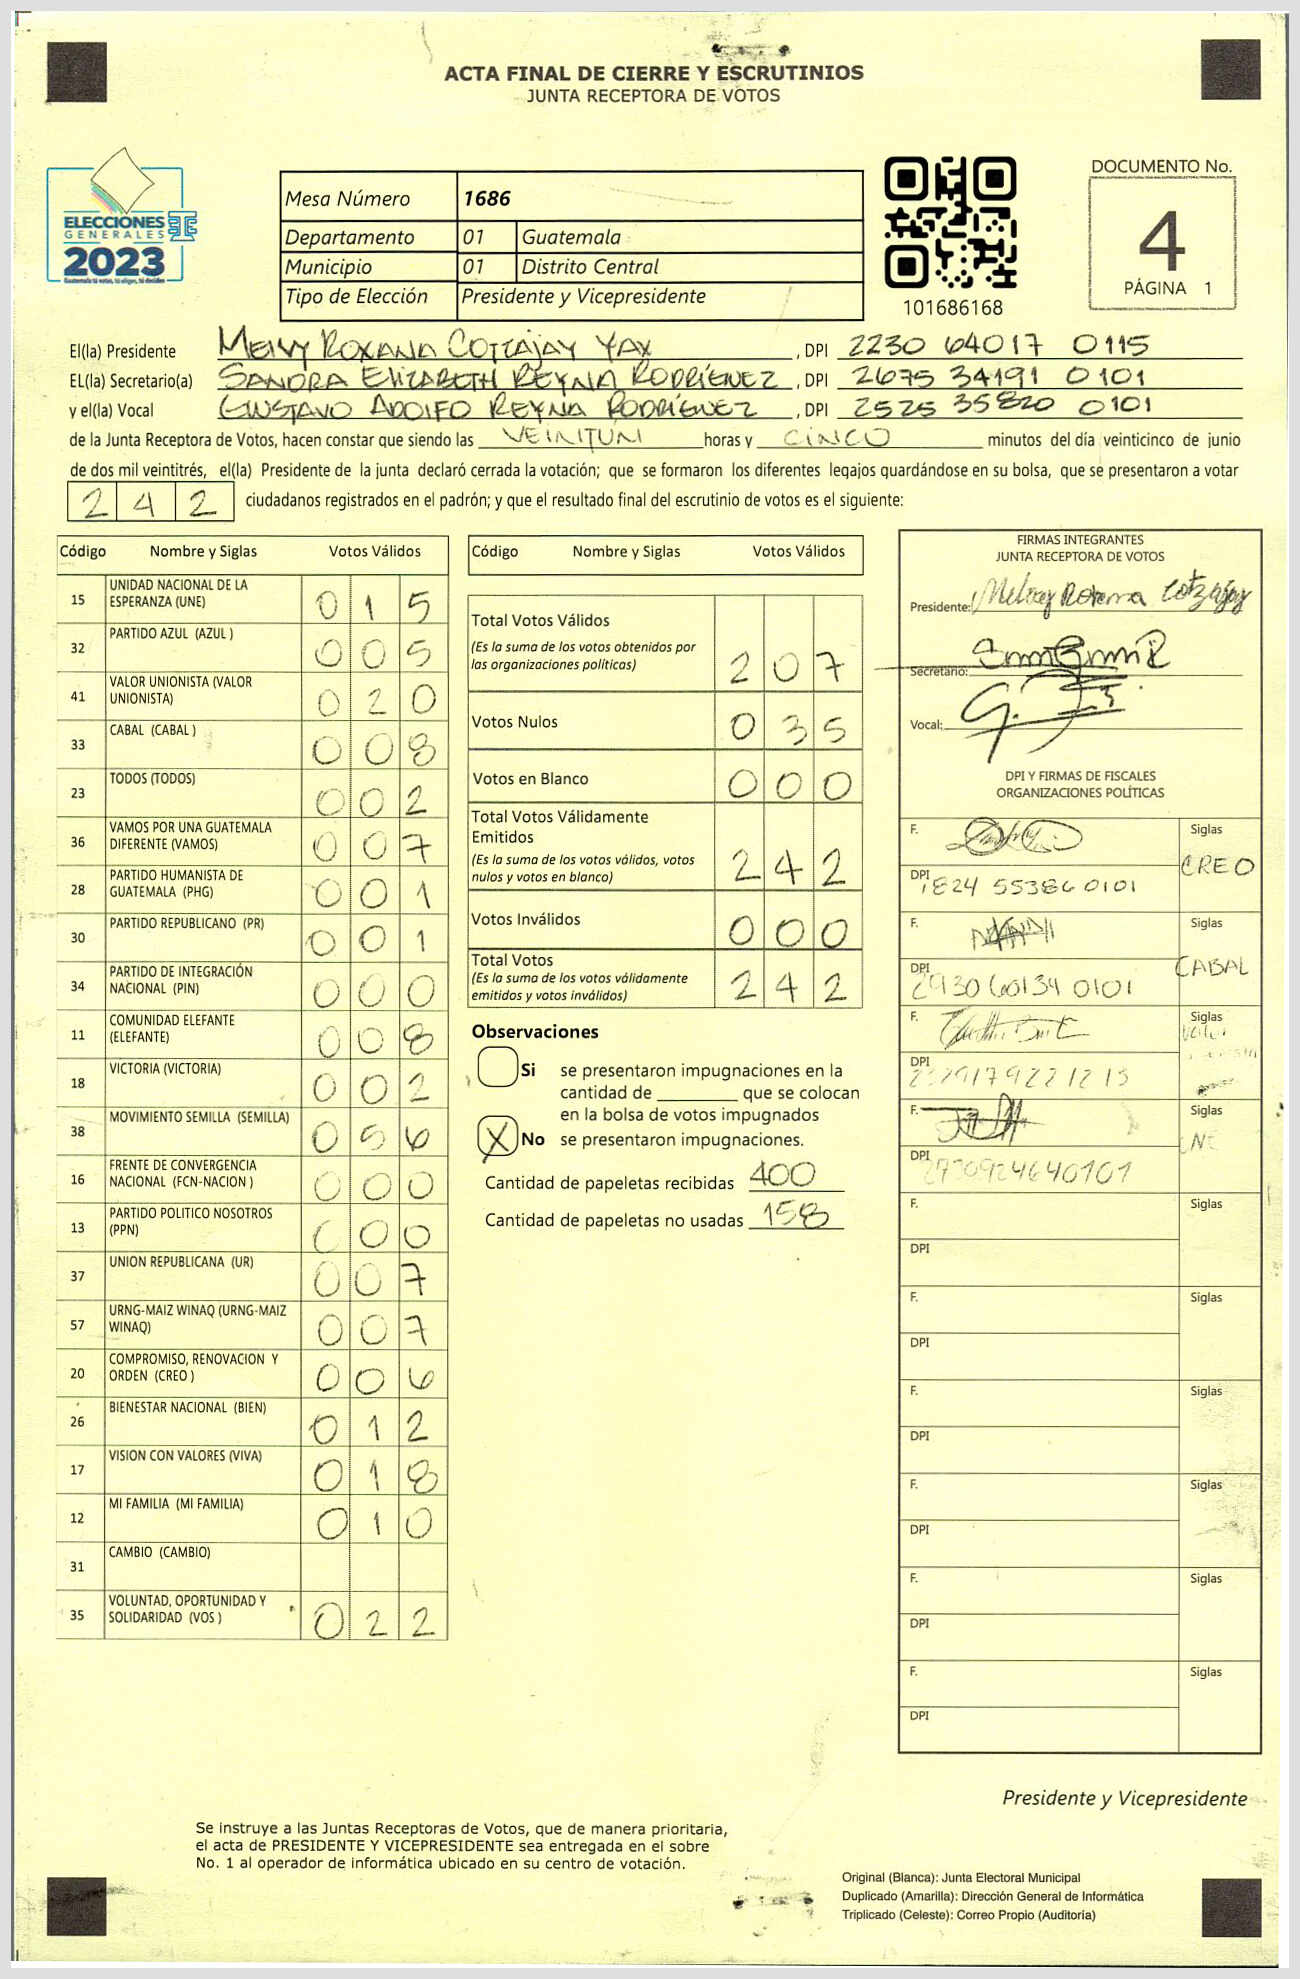 ACTA FINAL DE CIERRE Y ESCRUTINIOS
JUNTA RECEPTORA DE VOTOS
ELECCIONES
GENERALES
2023
Guatemala tú votas, tú eliges, tú decides
Mesa Número 1686
Departamento 01 Guatemala
Municipio 01 Distrito Central
Tipo de Elección Presidente y Vicepresidente
101686168
DOCUMENTO No.
4
PÁGINA 1
El(la) Presidente MELVY ROXANA COTZAJAY YAX, DPI 2230 64017 0115
EL(la) Secretario(a) SANDRA ELIZABETH REYNA RODRÍGUEZ, DPI 2675 34191 0101
y el(la) Vocal GUSTAVO ADOLFO REYNA RODRÍGUEZ, DPI 2525 35820 0101
de la Junta Receptora de Votos, hacen constar que siendo las VEINITUNI horas y CINCO minutos del día veinticinco de junio
de dos mil veintitrés, el(la) Presidente de la junta declaró cerrada la votación; que se formaron los diferentes legajos quardándose en su bolsa, que se presentaron a votar
242 ciudadanos registrados en el padrón; y que el resultado final del escrutinio de votos es el siguiente:
Código Nombre y Siglas Votos Válidos
15 UNIDAD NACIONAL DE LA ESPERANZA (UNE) 015
32 PARTIDO AZUL (AZUL ) 005
41 VALOR UNIONISTA (VALOR UNIONISTA) 020
33 CABAL (CABAL ) 008
23 TODOS (TODOS) 002
36 VAMOS POR UNA GUATEMALA DIFERENTE (VAMOS) 007
28 PARTIDO HUMANISTA DE GUATEMALA (PHG) 001
30 PARTIDO REPUBLICANO (PR) 001
34 PARTIDO DE INTEGRACIÓN NACIONAL (PIN) 000
11 COMUNIDAD ELEFANTE (ELEFANTE) 008
18 VICTORIA (VICTORIA) 002
38 MOVIMIENTO SEMILLA (SEMILLA) 056
16 FRENTE DE CONVERGENCIA NACIONAL (FCN-NACION ) 000
13 PARTIDO POLITICO NOSOTROS (PPN) 000
37 UNION REPUBLICANA (UR) 007
57 URNG-MAIZ WINAQ (URNG-MAIZ WINAQ) 007
20 COMPROMISO, RENOVACION Y ORDEN (CREO ) 006
26 BIENESTAR NACIONAL (BIEN) 012
17 VISION CON VALORES (VIVA) 018
12 MI FAMILIA (MI FAMILIA) 010
31 CAMBIO (CAMBIO)
35 VOLUNTAD, OPORTUNIDAD Y SOLIDARIDAD (VOS ) 022
Código Nombre y Siglas Votos Válidos
Total Votos Válidos
(Es la suma de los votos obtenidos por
las organizaciones políticas) 207
Votos Nulos 035
Votos en Blanco 000
Total Votos Válidamente
Emitidos
(Es la suma de los votos válidos, votos
nulos y votos en blanco) 242
Votos Inválidos 000
Total Votos
(Es la suma de los votos válidamente
emitidos y votos inválidos) 242
Observaciones
Si se presentaron impugnaciones en la
cantidad de ________ que se colocan
en la bolsa de votos impugnados
X No se presentaron impugnaciones.
Cantidad de papeletas recibidas 400
Cantidad de papeletas no usadas 158
FIRMAS INTEGRANTES
JUNTA RECEPTORA DE VOTOS
Presidente:
Secretario:
Vocal:
DPI Y FIRMAS DE FISCALES
ORGANIZACIONES POLÍTICAS
F. Siglas
CREO
DPI 1824 55386 0101
F. Siglas
CABAL
DPI 2930 60134 0101
F. Siglas
DPI
F. Siglas
UNE
DPI 2730924640101
F. Siglas
DPI
F. Siglas
DPI
F. Siglas
DPI
F. Siglas
DPI
F. Siglas
DPI
F. Siglas
DPI
Presidente y Vicepresidente
Se instruye a las Juntas Receptoras de Votos, que de manera prioritaria,
el acta de PRESIDENTE Y VICEPRESIDENTE sea entregada en el sobre
No. 1 al operador de informática ubicado en su centro de votación.
Original (Blanca): Junta Electoral Municipal
Duplicado (Amarilla): Dirección General de Informática
Triplicado (Celeste): Correo Propio (Auditoría)